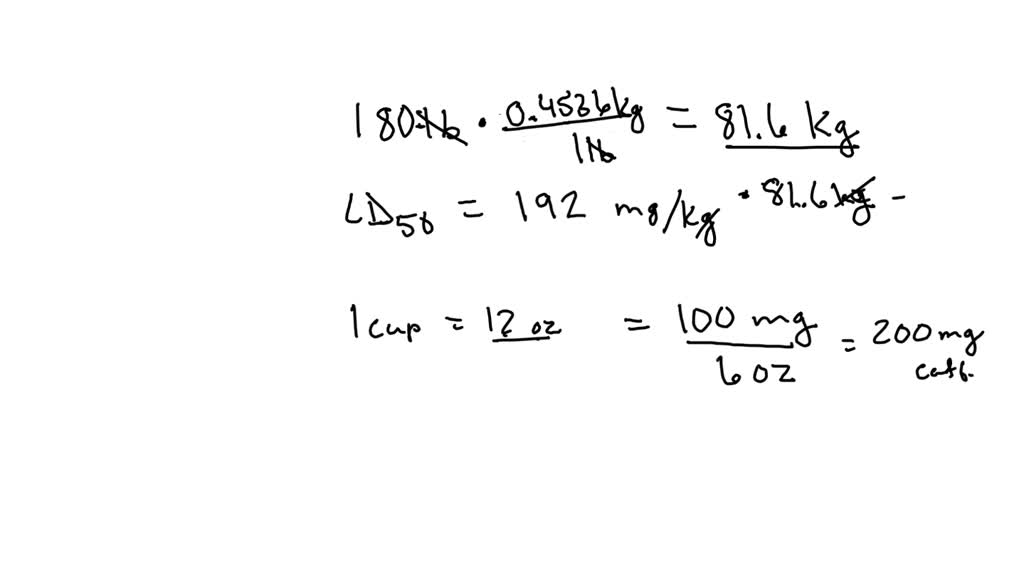 180 lb · 0.4536 kg / 1 lb = 81.6 kg
LD50 = 192 mg/kg · 81.6 kg -
1 cup = 12 oz = 100 mg / 6 oz = 200 mg
caff.